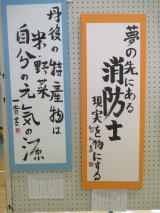 夢の先にある
消防士
現実を物にする
丹後の特産物は
米・野菜
自分の元気の源